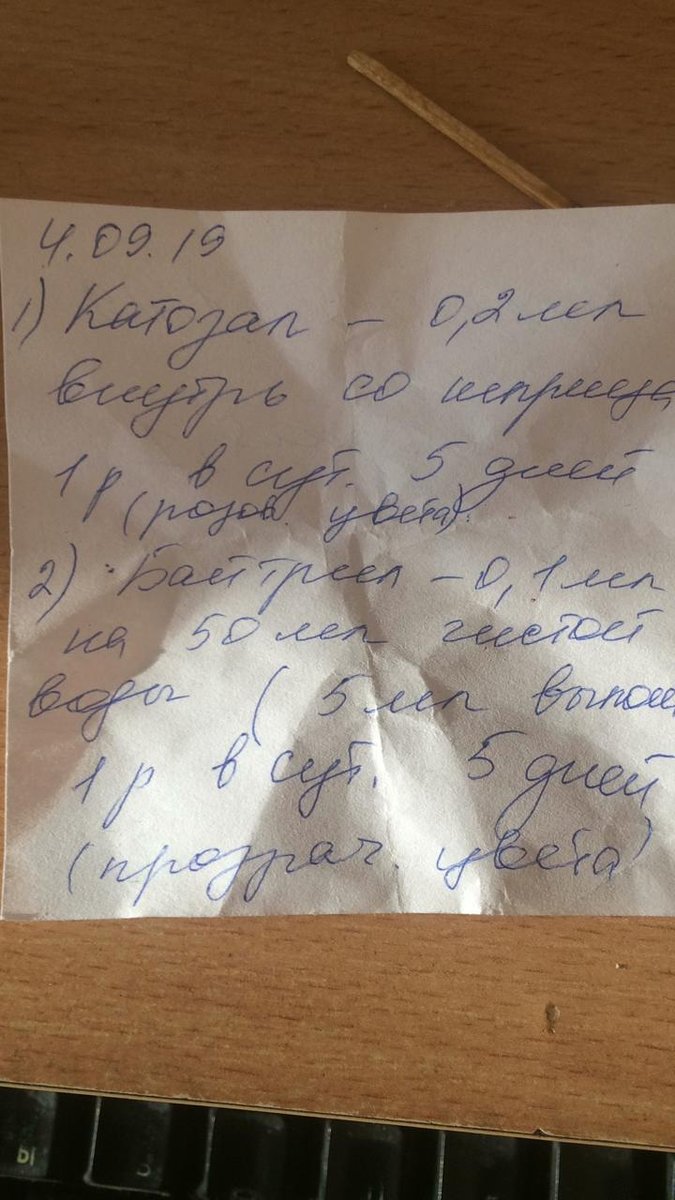 4.09.19
1) Катозал - 0,2 мл
внутрь со шприца
1 р в сут. 5 дней
(розов. цвета)
2) Байтрил - 0,1 мл
на 50 мл чистой
воды ( 5 мл выпои
1 р в сут. 5 дней
(прозрач. цвета)
Ы